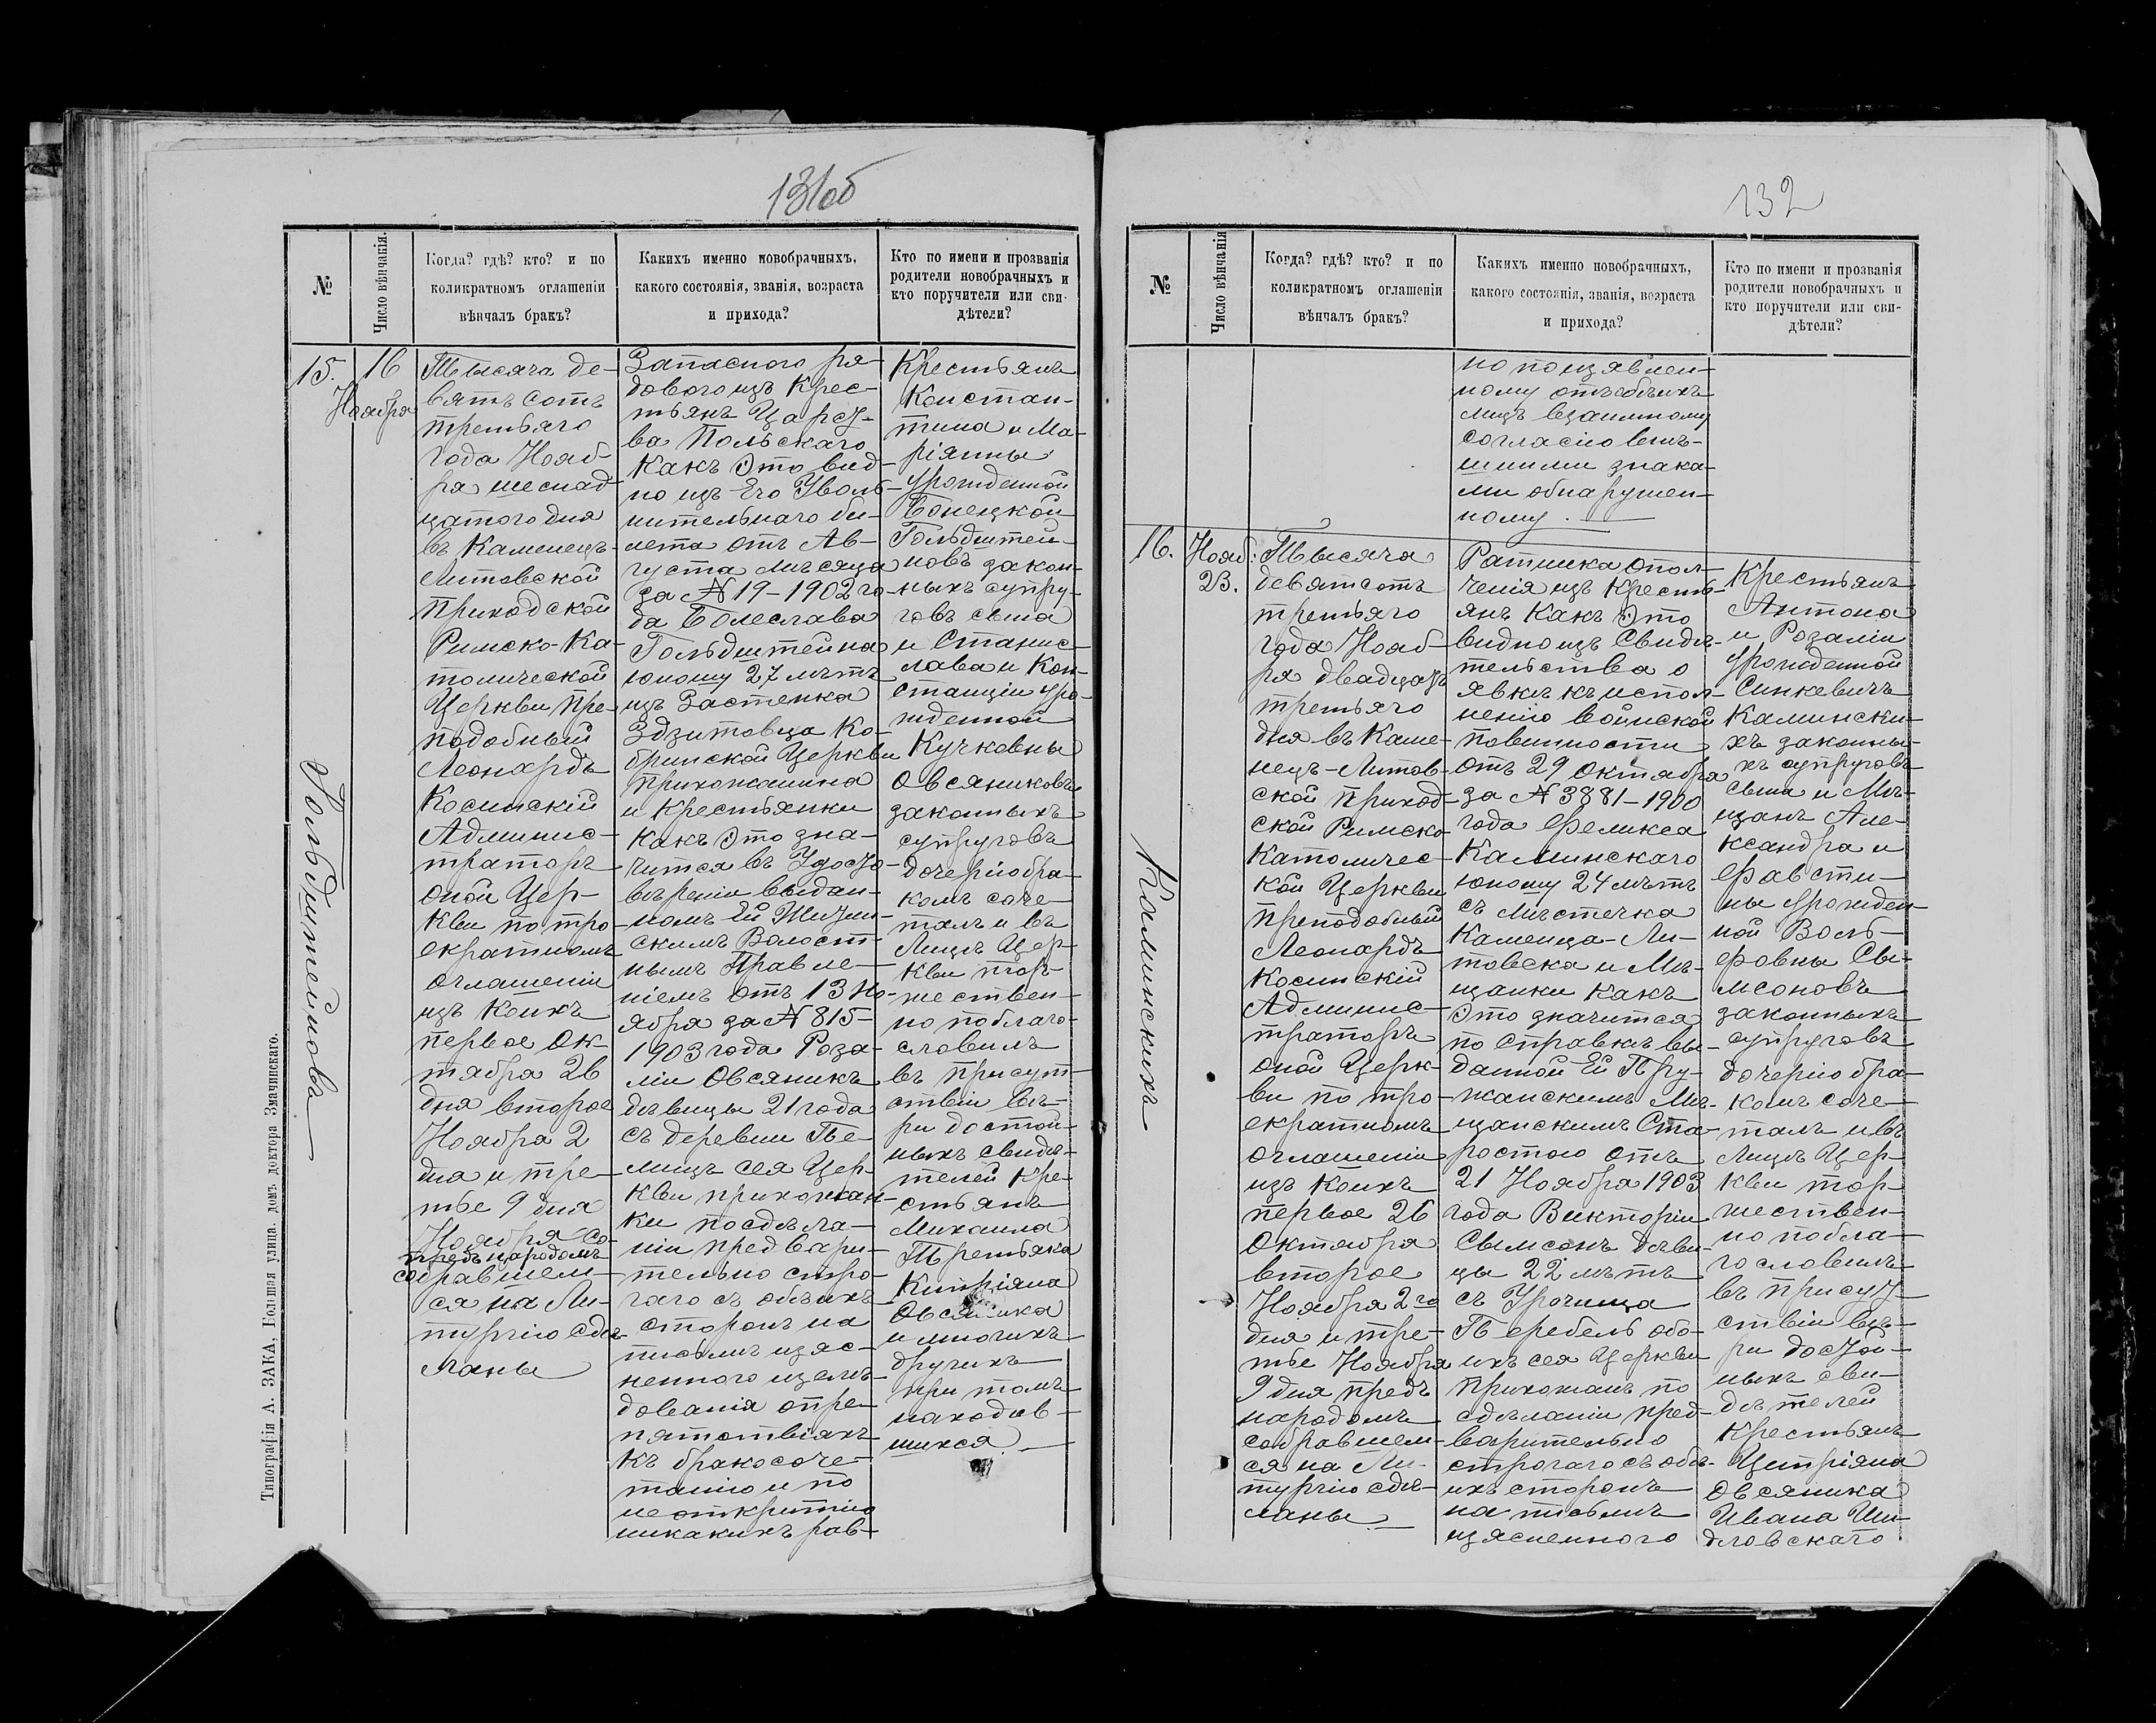 131об
№
Число вѣнчанія.
Когда? гдѣ? кто? и по
коликратномъ оглашеніи
вѣнчалъ бракъ?
Какихъ именно новобрачныхъ,
какого состоянія, званія, возраста
и прихода?
Кто по имени и прозванія
родители новобрачныхъ и
кто поручители или сви-
дѣтели?
15.
16
Ноября
Гольдштейновъ
Тысяча де-
вятьсотъ
третьяго
года Нояб-
ря шеснад-
цатого дня
въ Каменецъ-
Литовской
приходской
Римско-Ка-
толической
Церкви Пре-
подобный
Леонардъ
Косинскій
Админис-
траторъ
оной Цер-
кви по тро-
екратномъ
оглашеніи
изъ коихъ
первое Ок-
тября 26
дня второе
Ноября 2
дня и тре-
тье 9 дня
Ноября
предъ народомъ
собравшем-
ся на Ли-
тургію сдѣ-
ланы
Запасного ря-
дового изъ Крес-
тьянъ Царст-
ва Польскаго
какъ это вид-
но изъ Его Уволь-
нительнаго би-
лета отъ Ав-
густа мѣсяца
за № 19-1902 го-
да Болеслава
Гольдштейна
юношу 27 лѣтъ
изъ Застенка
Здзитовца Ко-
бринской Церкви
прихожанина
и Крестьянки
какъ это зна-
чится въ Удосто-
вѣреніи выдан-
номъ Ей
скимъ Волост-
нымъ Правле-
ніемъ отъ 13 Но-
ября за № 815-
1903 года Роза-
ліи Овсяникъ
дѣвицы 21 года
съ деревни Пе-
лищъ сея Цер-
кви прихожан-
ки по сдѣла-
ніи предвари-
тельно стро-
гаго съ обѣихъ
сторонъ на
письмѣ изяс-
неннаго изслѣ-
дованія о пре-
пятствіяхъ
къ бракосоче-
танію и по
неоткрытію
никакихъ рав-
Крестьянъ
Констан-
тина и Ма-
ріянны
урожденной
Бонецкой
Гольдштей-
новъ закон-
ныхъ супру-
говъ сына
и Станис-
лава и Кон-
станціи уро-
жденной
Кучковны
Овсяниковъ
законныхъ
супруговъ
дочерію бра-
комъ соче-
талъ и въ
Лицѣ Цер-
кви тор-
жествен-
но поблаго-
словилъ
въ присут-
ствіи вѣ-
ри достой-
ныхъ свидѣ-
телей Кре-
стьянъ
Михаила
Третьяка
Кипріяна
Овсяника
и многихъ
другихъ
при томъ
находив-
шихся.
Типографія А. ЗАКА, Большая улица. домъ доктора Змачинскаго.
132
№
Число вѣнчанія
Когда? гдѣ? кто? и по
коликратномъ оглашеніи
вѣнчалъ бракъ?
Какихъ именно новобрачныхъ,
какого состоянія, званія, возраста
и прихода?
Кто по имени и прозванія
родители новобрачныхъ и
кто поручители или сви-
дѣтели?
но по изявлен-
ному отъ обѣихъ
лицъ взаимному
согласію внѣ-
шними знака-
ми обнаружен-
ному.
16.
Нояб:
23.
Каминскихъ
Тысяча
девятсотъ
третьяго
года Нояб-
ря двадцать
третьяго
дня въ Каме-
нецъ-Литов-
ской приход-
ской Римско
Католичес-
кой Церкви
Преподобный
Леонардъ
Косинскій
Админис-
траторъ
оной Церк-
ви по тро-
екратномъ
оглашеніи
изъ коихъ
первое 26
Октября
второе
Ноября 2го
дня и тре-
тье Ноября
9 дня предъ
народомъ
собравшем-
ся на Ли-
тургію сдѣ-
ланы.
Ратника опол-
ченія изъ Кресть-
янъ какъ это
видно изъ Свидѣ-
тельства о
явкѣ къ испол-
ненію воинской
повинности
отъ 29 Октября
за № 3881-1900
года Феликса
Каминскаго
юношу 24 лѣтъ
съ мѣстечка
Каменца-Ли-
товска и Мѣ-
щанки какъ
это значится
по справкѣ вы-
данной Ей Пру-
жанскимъ Мѣ-
щанскимъ Ста-
ростою отъ
21 Ноября 1903
года Викторіи
Сымсонъ дѣви-
цы 22 лѣтъ
съ Урочища
Перебель обо-
ихъ сея Церкви
прихожанъ по
сдѣланіи пред-
варительно
строгаго съ обѣ-
ихъ сторонъ
на письмѣ
изясненного
Крестьянъ
Антона
и Розаліи
урожденной
Синкевичъ
Камински-
хъ законны-
хъ супруговъ
сына и Мѣ-
щанъ Але-
ксандра и
Фавсти-
ны урожден-
ной Воль-
фовны Сы-
мсоновъ
законныхъ
супруговъ
дочерію бра-
комъ соче-
талъ и въ
Лицѣ Цер-
кви тор-
жествен-
но побла-
гословилъ
въ присут-
ствіи вѣ-
ри достой-
ныхъ сви-
дѣтелей
Крестьянъ
Ципріяна
Овсяника
Ивана Ши-
дловскаго